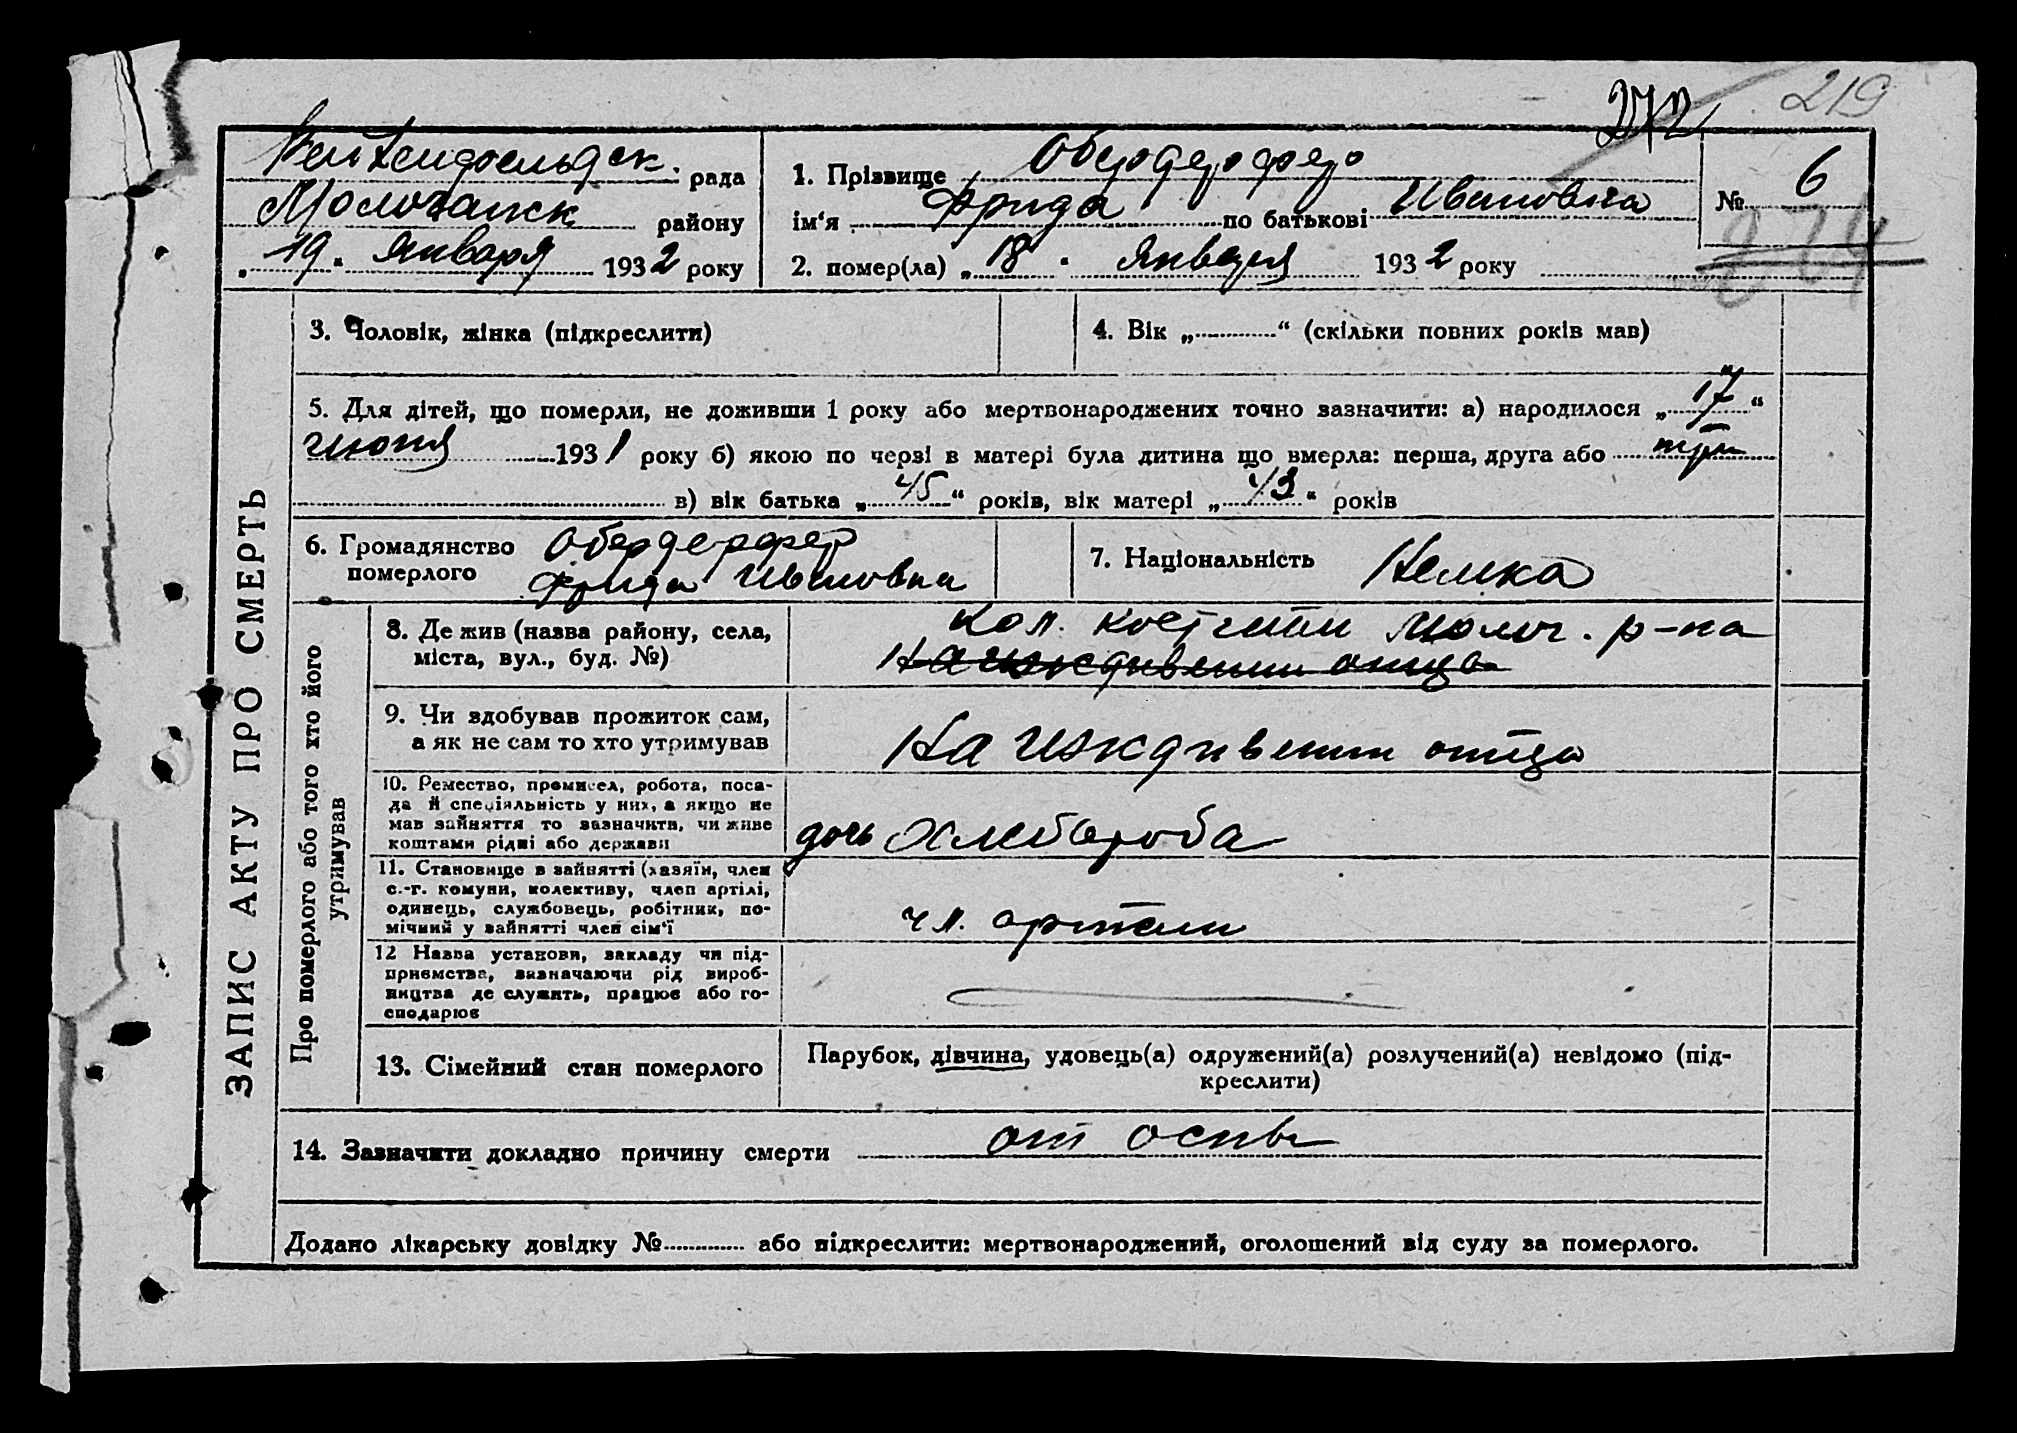 219
272
рада
Молочанск району
„19“ Января 1932 року
1. Прізвище Обердерфер
ім‘я Фрида по батькові Ивановна
2. помер(ла) „18“ Января 1932 року
№ 6
274
ЗАПИС АКТУ ПРО СМЕРТЬ
3. Чоловік, жінка (підкреслити)
4. Вік „............“ (скільки повних років мав)
5. Для дітей, що померли, не доживши 1 року або мертвонароджених точно зазначити: а) народилося „17“
июня 1931 року б) якою по черзі в матері була дитина що вмерла: перша, друга або
в) вік батька „45“ років, вік матері „43“ років
6. Громадянство Обердерфер
померлого Фрида Ивановна
7. Національність Немка
Про померлого або того хто його
утримував
8. Де жив (назва району, села,
міста, вул., буд. №)
кол. Костгейм Молоч. р-на
На иждивении отца
9. Чи здобував прожиток сам,
а як не сам то хто утримував
На иждивении отца
10. Ремество, промисел, робота, поса-
да й спеціяльність у них, а якщо не
мав зайняття то зазначити, чи живе
коштами рідні або держави
дочь Хлебороба
11. Становище в зайнятті (хазяїн, член
с.-г. комуни, колективу, член артілі,
одинець, службовець, робітник, по-
мічний у зайнятті член сім‘ї
чл. артели
12 Назва установи, закладу чи під-
приємства, зазначаючи рід вироб-
ництва де служить, працює або го-
сподарює
13. Сімейний стан померлого
Парубок, дівчина, удовець(а) одружений(а) розлучений(а) невідомо (під-
креслити)
14. Зазначити докладно причину смерти от оспы
Додано лікарську довідку №............ або підкреслити: мертвонароджений, оголошений від суду за померлого.